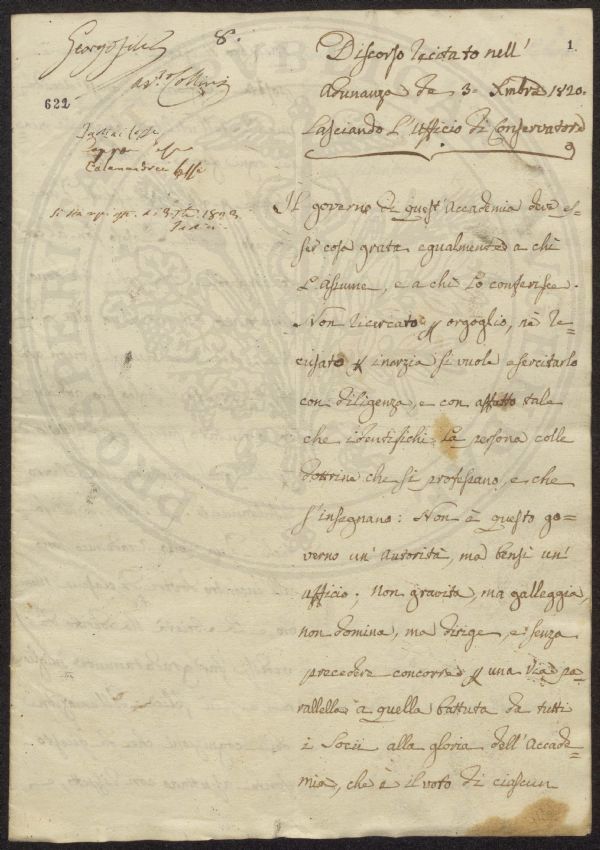 8.
1
622
Discorso recitato nell'
Adunanza de 3. Xmbre 1820.
Lasciando L'Ufficio di Conservatore
Il governo di quest'Accademia deve es=
ser cosa grata egualmente a chi
L'assume, e a chi Lo conferisce.
Non ricercato p orgoglio, nè re=
cusato p inerzia si vuole esercitarlo
con diligenza, e con affetto tale
che identifichi La persona colle
dottrine che si professano, e che
s'insegnano: Non è questo go=
verno un'Autorità, ma bensì un'
afficio; non gravita, ma galleggia,
non domina, ma dirige, e senza
precedere concorre p una via pa=
rallella a quella battuta da tutti
i Socii alla gloria dell'Accade=
mia, che è il voto di ciascun